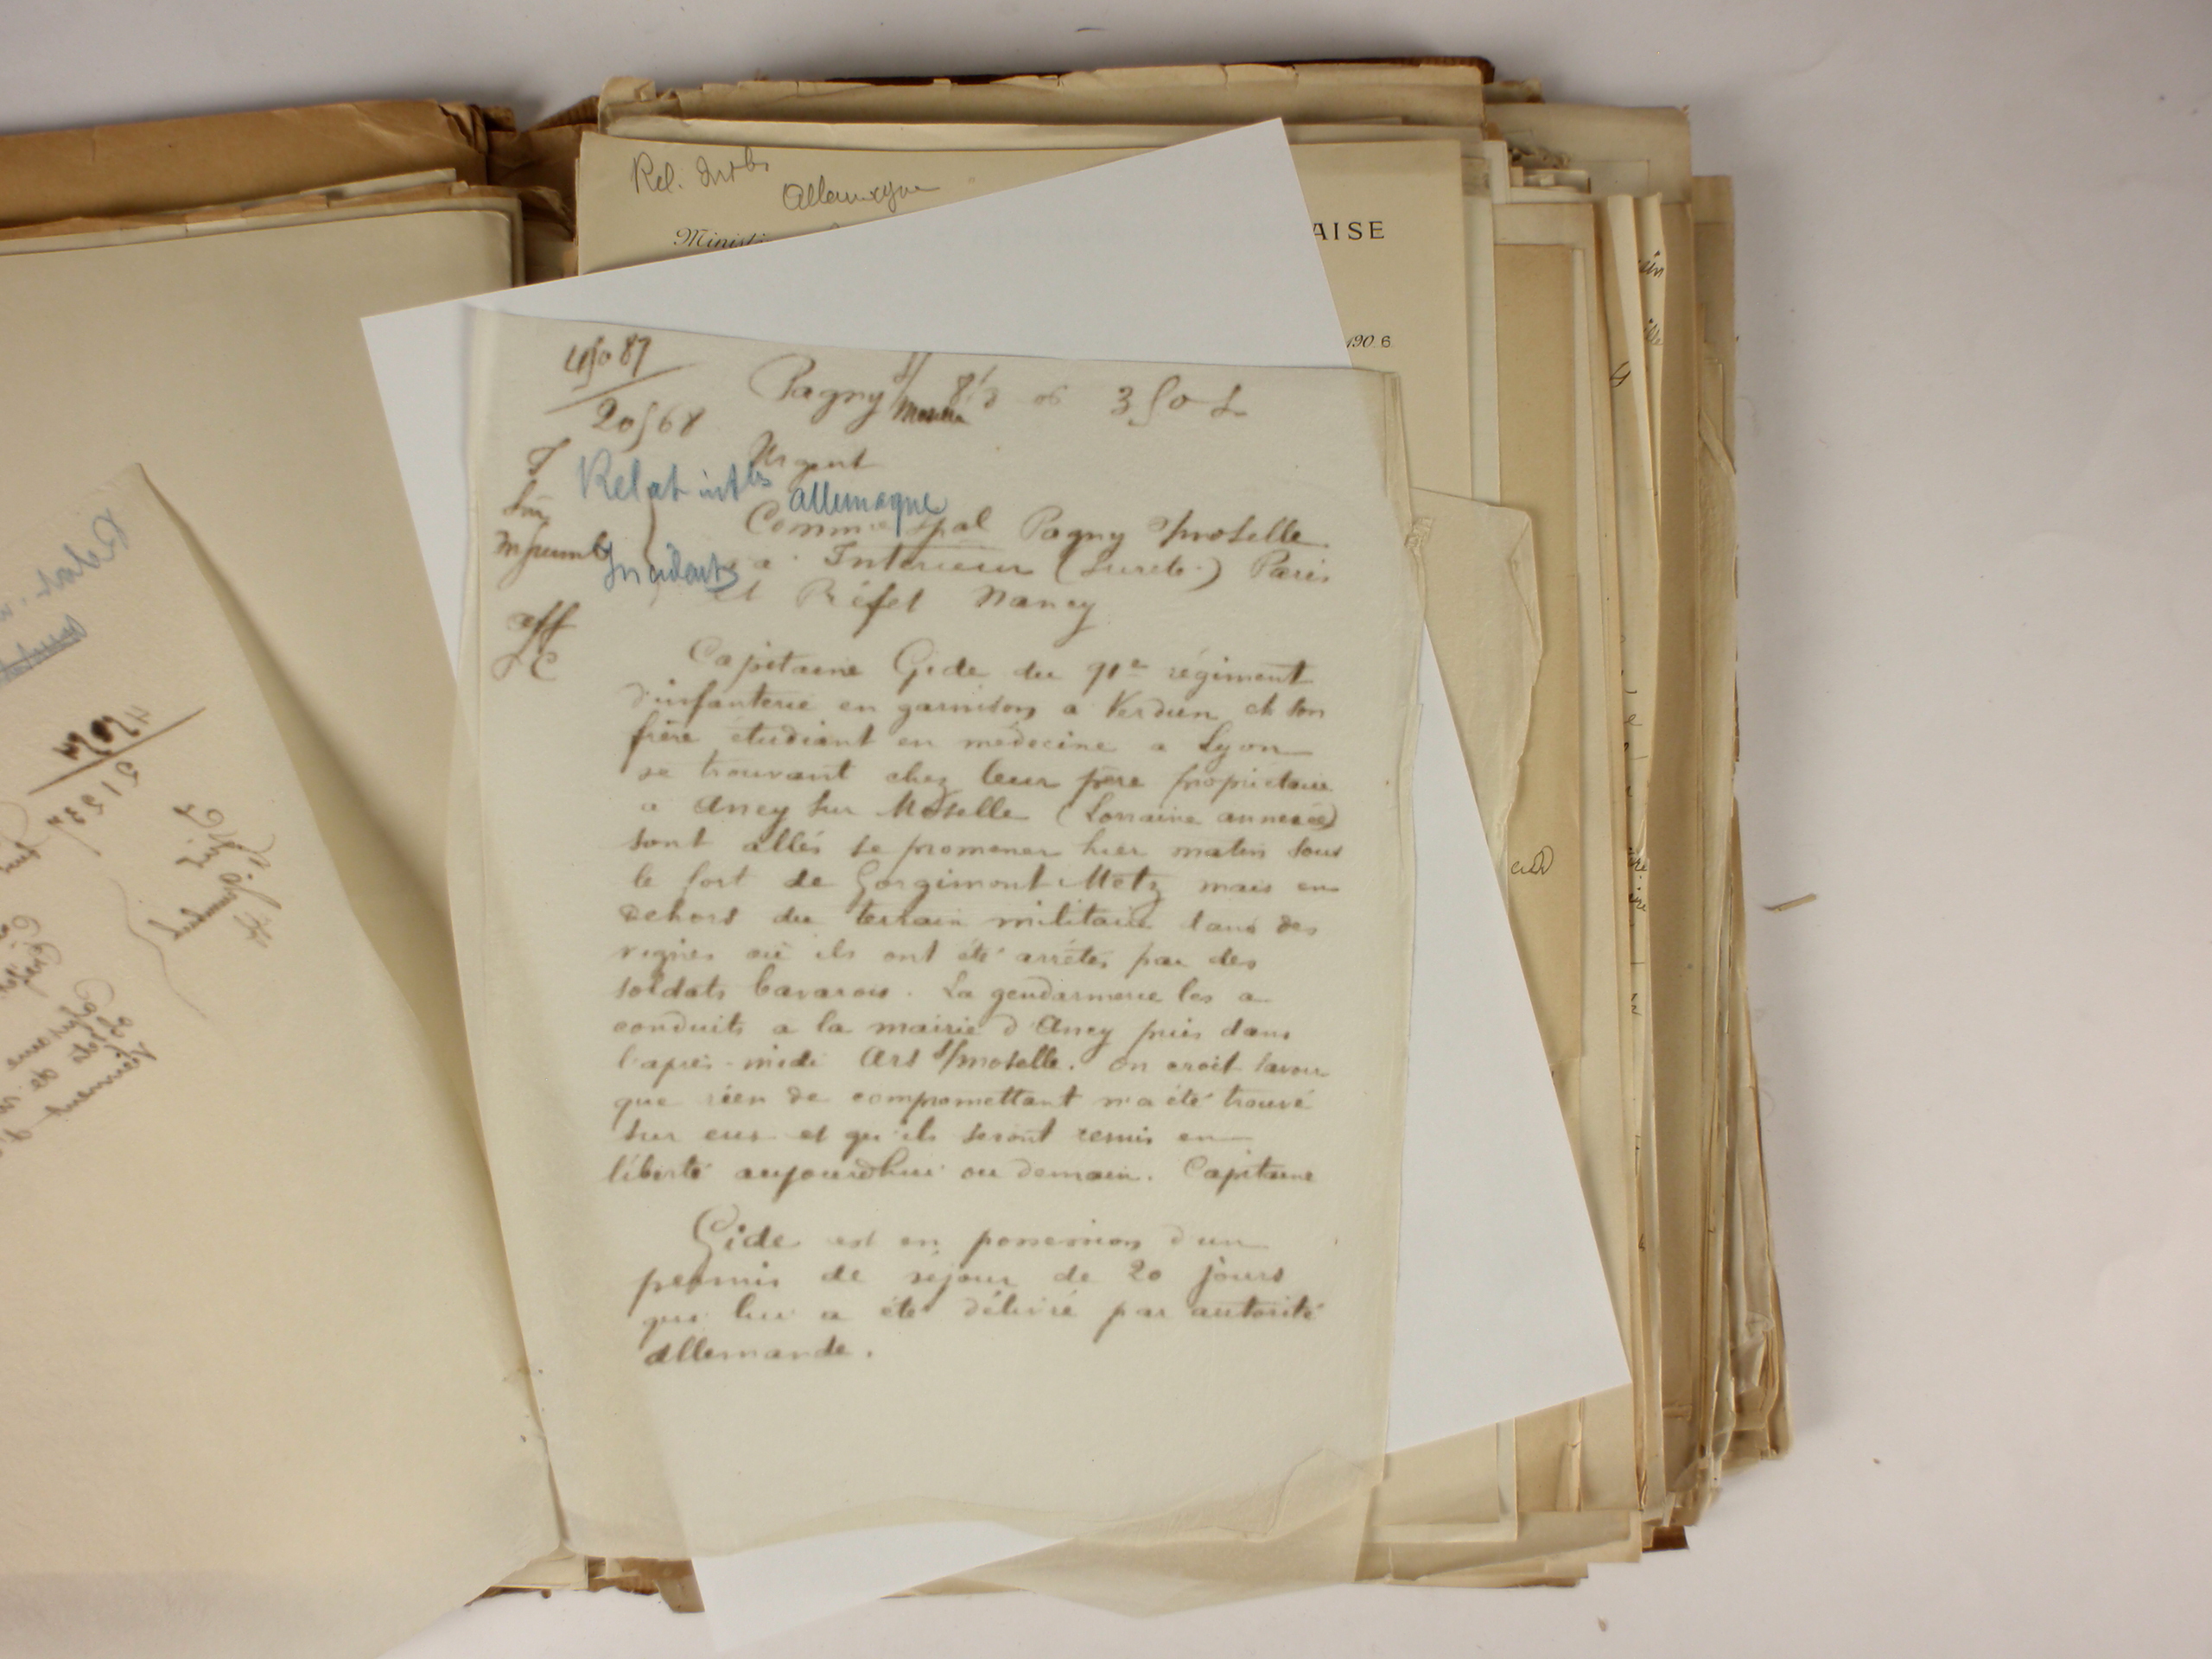 Rel. Intles
Allemagne
Minist
AISE
190 6
20568
Pagny s/ Moselle 3 50 S
Urgent
Relat intles allemagne
Comm re spal Pagny s/moselle
Incidents a Interieur (Sureté) Paris
et Préfet Nancy
aff
Capitaine Gide du 91e régiment
d'infanterie en garnison a Verdun et son
frère étudiant en médecine a Lyon
se trouvant chez leur père propriétaire
a Ancy sur Moselle (Lorraine annexée)
sont allés se promener hier matin sous
le fort de Gorgimont Metz mais en
dehors du terrain militaire dans des
vignes où ils ont été arrêtés par des
soldats bavarois. La gendarmerie les a
conduits a la mairie d'Ancy puis dans
l'après-midi Ars s/moselle. On croit savoir
que rien de compromettant n'a été trouvé
sur eux et qu'ils seront remis en
liberté aujourd'hui ou demain. Capitaine
Gide est en possession d'un
permis de séjour de 20 jours
qui lui a été délivré par autorité
allemande.